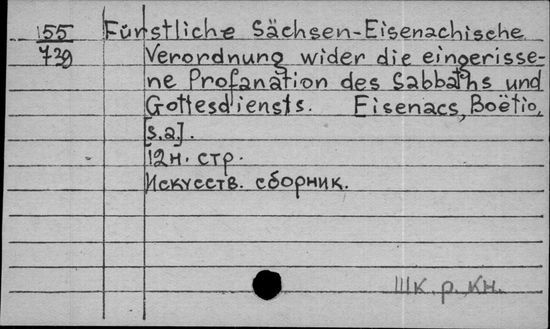 155 Fürstliche Sächsen-Eisenachische
729 Verordnung wider die eingerisse-
ne Profanation des Sabbaths und
Gottesdiensts. Eisenacs, Boëtio,
[s.a.].
12н. стр.
Искусств. сборник.
Шк. р. кн.